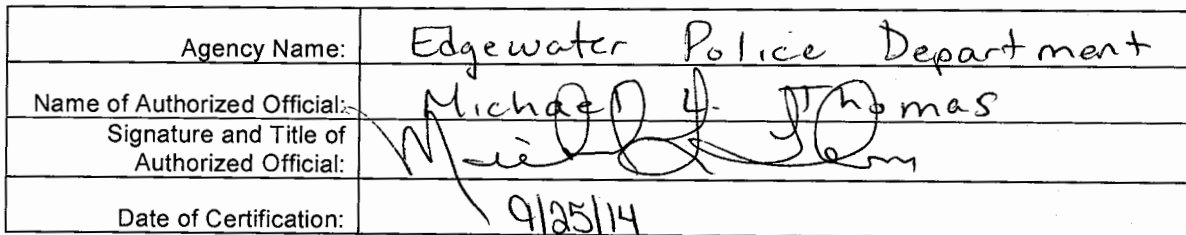 Agency Name: Edgewater Police Department
Name of Authorized Official: Michael L. Thomas
Signature and Title of
Authorized Official:
Date of Certification: 9/25/14